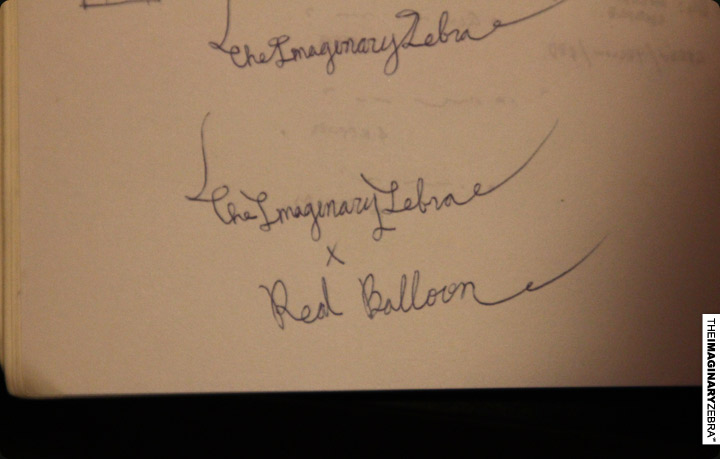 The Imaginary Zebra
The Imaginary Zebra
x
Red Balloon
THEIMAGINARYZEBRA"